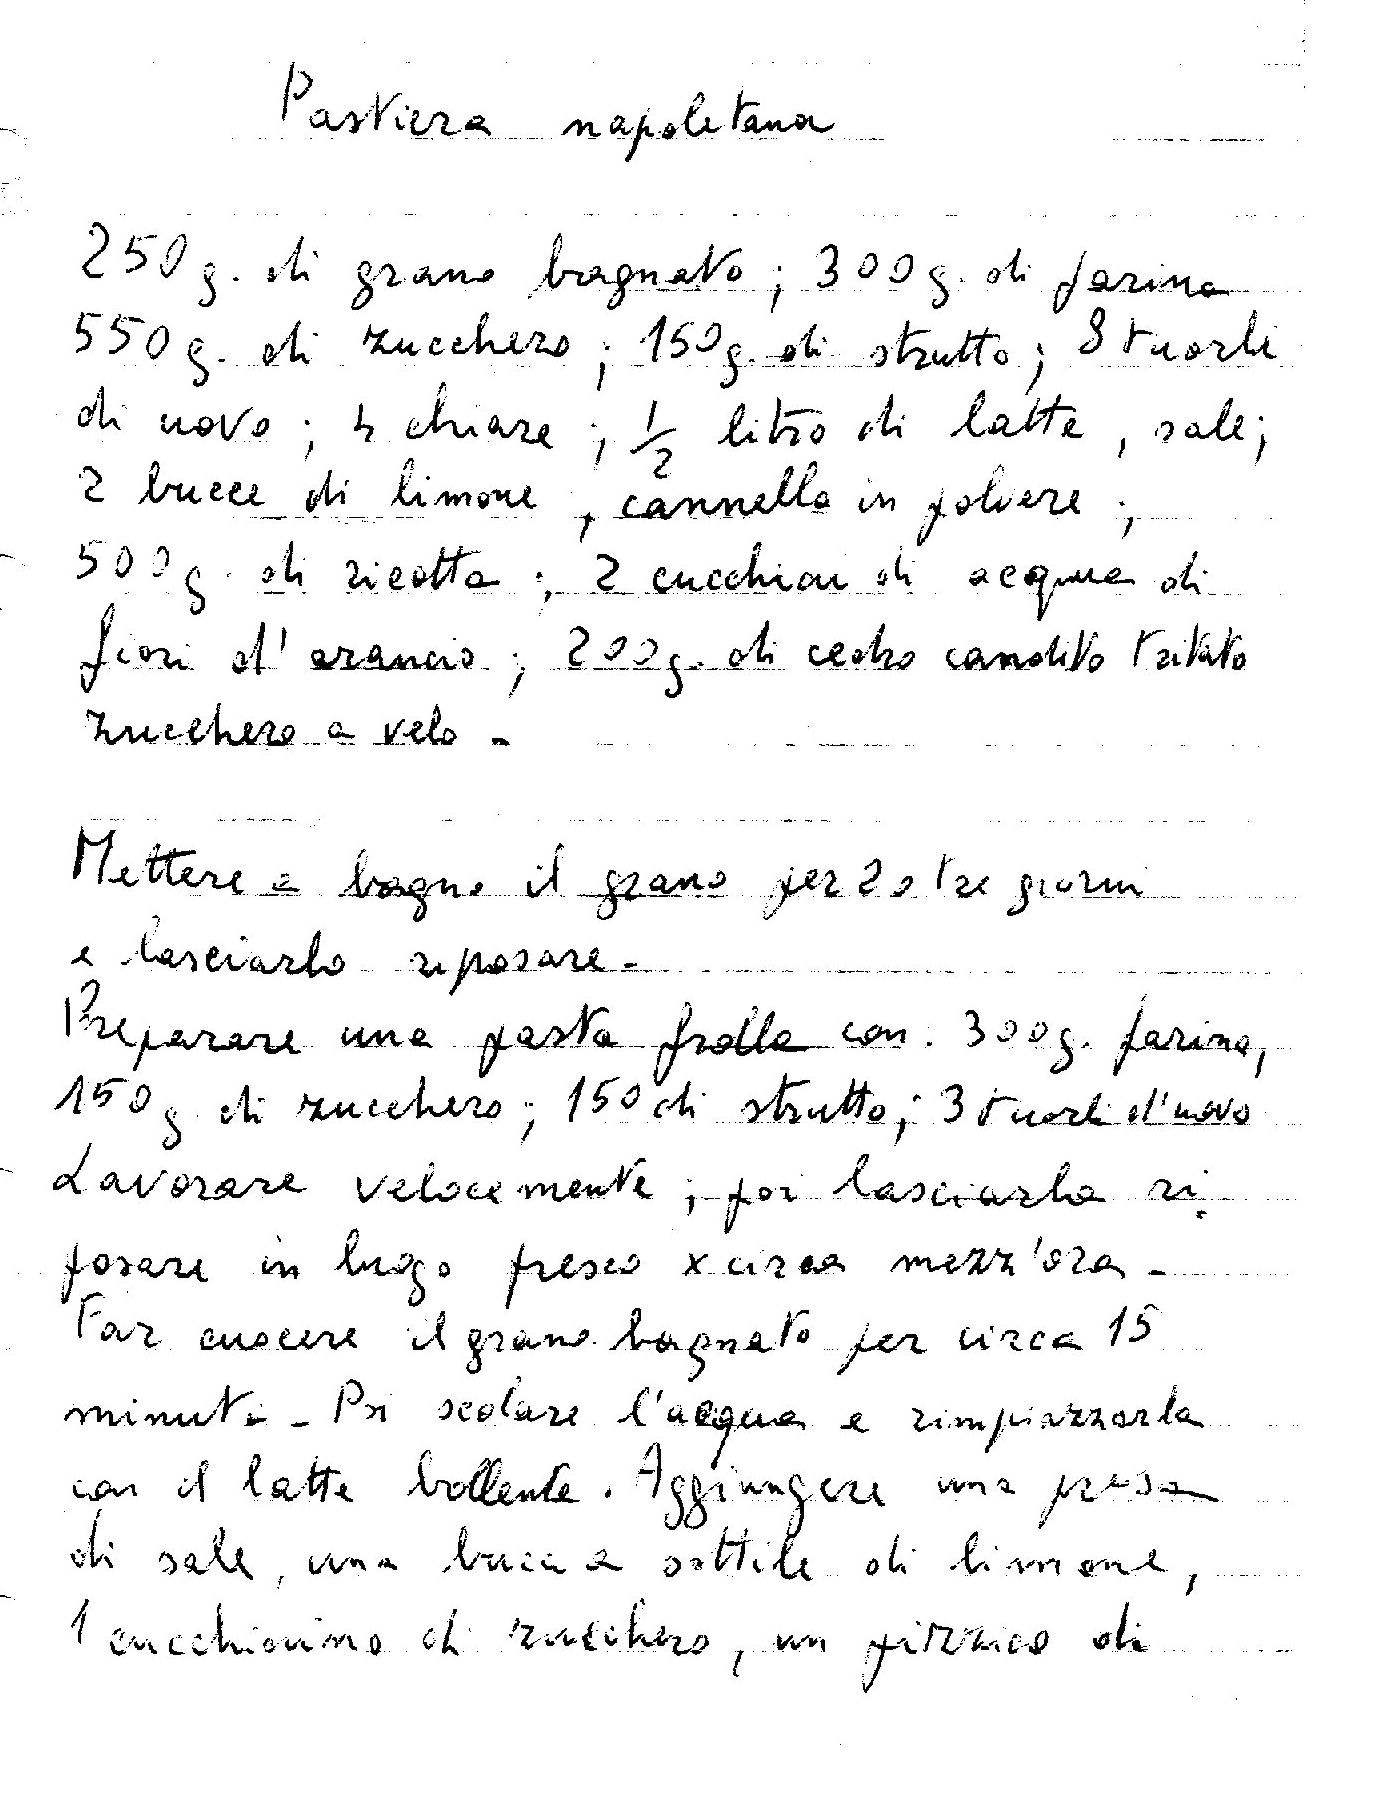 Pastiera napoletana
250 g. di grano bagnato ; 300 g. di farina
550 g. di zucchero ; 150 g. di strutto ; 8 tuorli
di uovo ; 4 chiare ; 1/2 litro di latte , sale ;
2 bucce di limone , cannella in polvere ;
500 g. di ricotta ; 2 cucchiai di acqua di
fiori d'arancio ; 200 g. di cedro candito tritato
zucchero a velo -
Mettere a bagno il grano per 2 o tre giorni
e lasciarlo riposare -
Preparare una pasta frolla con . 300 g. farina,
150 g di zucchero ; 150 di strutto ; 3 tuorli d'uovo
Lavorare velocemente ; poi lasciarla ri
posare in luogo fresco x circa mezz'ora -
Far cuocere il grano bagnato per circa 15
minuti - Poi scolare l'acqua e rimpiazzarla
con il latte bollente . Aggiungere una presa
di sale , una buccia sottile di limone ,
1 cucchiaino di zucchero , un pizzico di